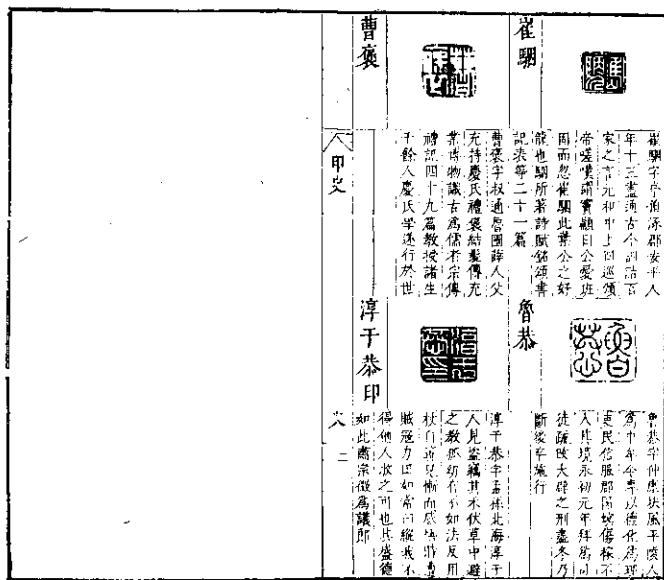 崔駰
崔駰字亭伯涿郡安平人
年十三盡通古今訓詁百
家之言元和中上四巡頌
帝嗟嘆謂竇顯曰公愛班
固而忽崔駰此葉公之好
龍也駰所著詩賦銘頌書
記表等二十一篇
曹褒
曹褒字叔通魯國薛人父
充持慶氏禮褒結髮傳充
業博物識古為儒者宗傳
禮記四十九篇教授諸生
千餘人慶氏學遂行於世
魯恭
魯恭字仲康扶風平陵人
為中牟令專以德化為理
吏民信服郡國螟傷稼不
入其境永初元年拜為司
徒疏改大辟之刑盡冬乃
斷後卒施行
淳于恭印
淳于恭字孟孫北海淳于
人見盜竊其禾伏草中避
之教孤幼有不如法反用
杖自箠兒慚而感悟時遭
賊寇力田如常曰縱我不
得他人收之可也其盛德
如此肅宗徵為議郎
印史
二